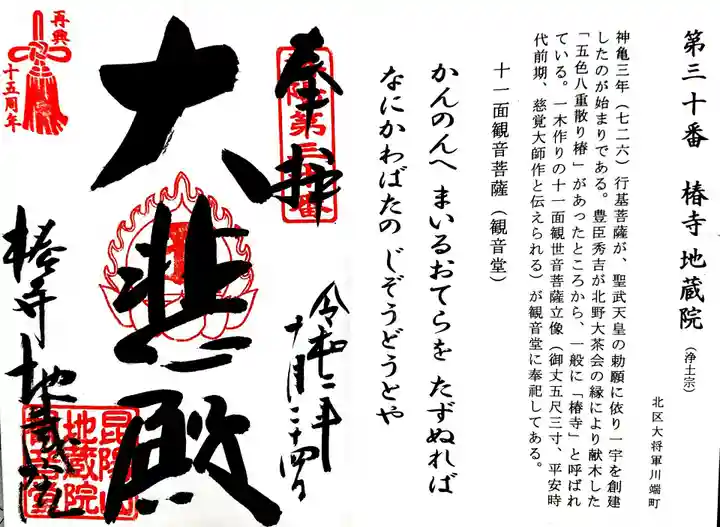 第三十番 椿寺 地蔵院 (浄土宗)
北区大将軍川端町
神亀三年(七二六)行基菩薩が、聖武天皇の勅願に依り一宇を創建
したのが始まりである。豊臣秀吉が北野大茶会の縁により献木した
「五色八重散り椿」があったところから、一般に「椿寺」と呼ばれ
ている。一木作りの十一面観世音菩薩立像(御丈五尺三寸、平安時
代前期、慈覚大師作と伝えられる)が観音堂に奉祀してある。
十一面観音菩薩(観音堂)
かんのんへ まいるおてらを たずぬれば
なにかわばたの じぞうどうとや
奉拝
洛陽第三十番
令和二年
十月二十四日
大悲殿
椿寺地蔵院
昆陽山
地蔵院
再興
十五周年